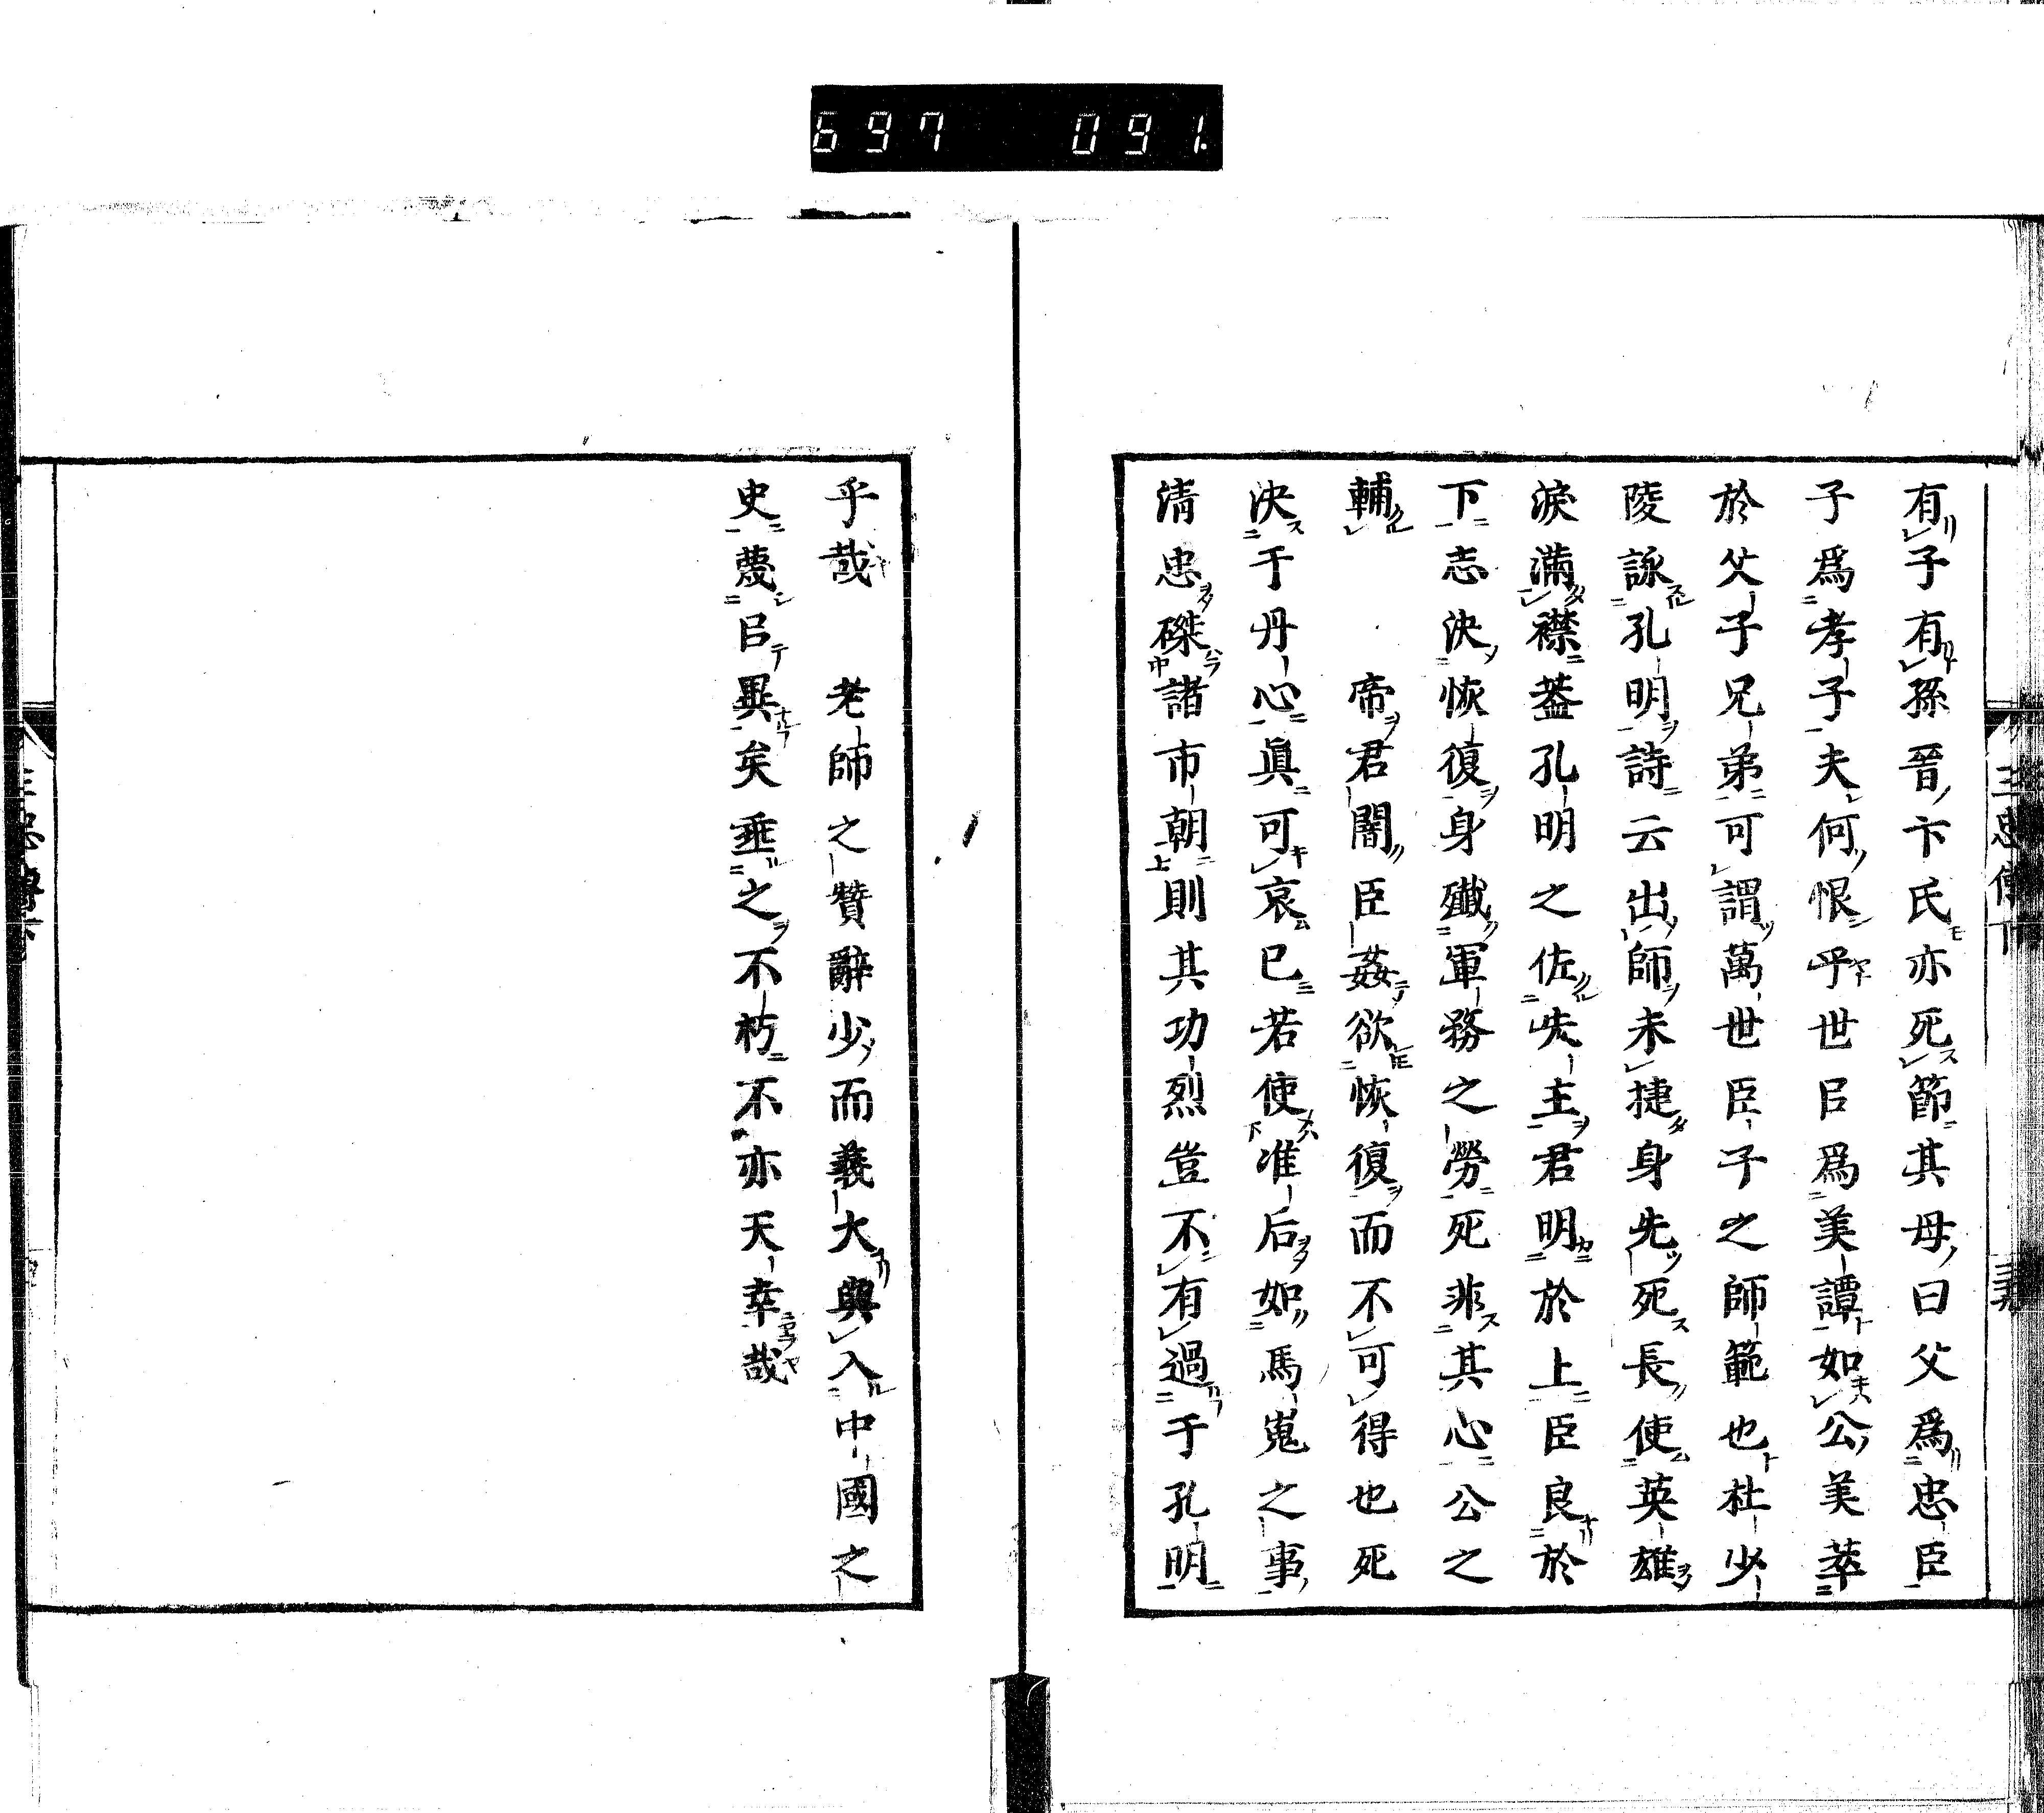 697 091.
三忠傳下
有子有孫晉卞氏亦死節其母曰父爲忠臣
子爲孝子夫何恨乎世㠯爲美譚如公美萃
於父子兄弟可謂萬世臣子之師範也杜少
陵詠孔明詩云出師未捷身先死長使英雄
淚滿襟蓋孔明之佐先主君明於上臣良於
下志決恢復身殲軍務之勞死非其心公之
輔　帝君闇臣姦欲恢復而不可得也死
決于丹心眞可哀已若使准后如馬嵬之事
清忠磔諸市朝則其功烈豈不有過于孔明
乎哉　老師之贊辭少而義大與入中國之
史蔑㠯異矣垂之不朽不亦天幸哉
三忠傳下